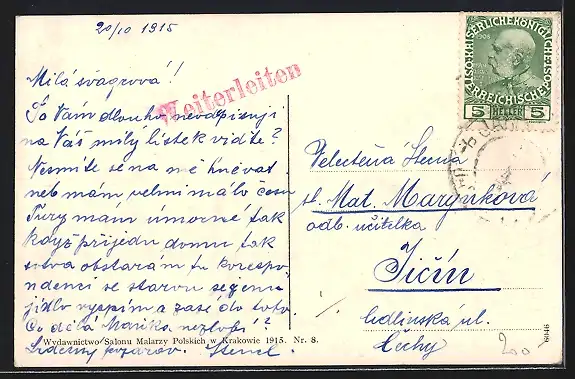 20/10 1915
Milá švagrová!
To Vám dlouho neodpisuji
na Váš milý lístek vidte?
Nesmíte se na mě hněvat
neb mám velmi málo času
Tury mám úmorné tak
když přijedu domu tak
sotva obstarám tu korespo
ndenci se starou
jídlo vyspím a zase do toho.
Co dělá Mařka nezlobí?
Srdečný pozdrav
Weiterleiten
KAISERLICHE KÖNIGLICHE
ÖSTERREICHISCHE POST
1908
5 HELLER 5
Velectěná Slečna
sl. Mat. Marynková
odb. učitelka
Jičín
Sedlinská ul.
Čechy
Wydawnictwo Salonu Malarzy Polskich w Krakowie 1915. Nr. 8.